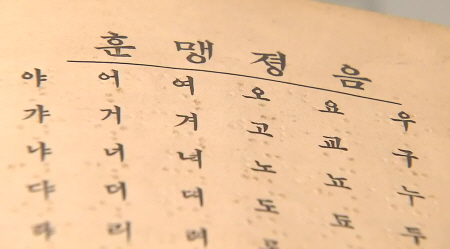 훈맹졍음
야 어 여 오 요 우
갸 거 겨 고 교 구
냐 너 녀 노 뇨 누
댜 더 뎌 도 됴 두
랴 러 려